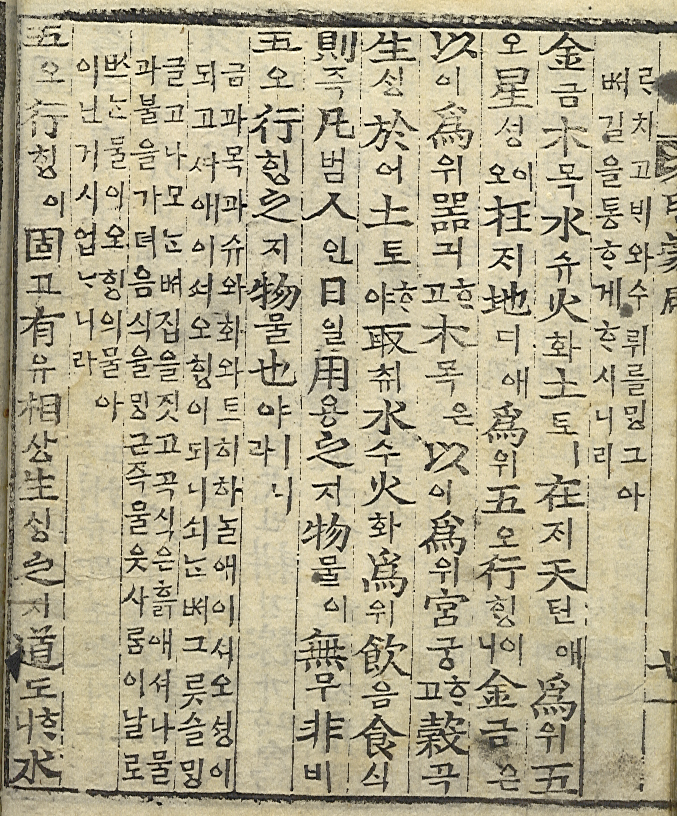 ᄅᆞᆫ치고ᄇᆡ와수뤼를ᄆᆡᆼ그아
ᄡᅥ길을통ᄒᆞ게ᄒᆞ시니라
金금木목水슈火화土토ㅣ在ᄌᆡ天텬애爲위五
오星셩이오在ᄌᆡ地디애爲위五오行ᄒᆡᆼ이니金금은
以이爲위器긔ᄒᆞ고木목은以이爲위宮궁ᄒᆞ고穀곡
生ᄉᆡᆼ於어土토ᄒᆞ야取ᄎᆔ水수火화爲위飮음食식
則즉凡범人인日일用용之지物물이無무非비
五오行ᄒᆡᆼ之지物물也야ㅣ니라
금과목과슈와화와토ㅣ하ᄂᆞᆯ애이셔오셩이
되고ᄯᅡ애이셔오ᄒᆡᆼ이되니쇠ᄂᆞᆫᄡᅥ그ᄅᆞᆺ슬ᄆᆡᆼ
글고나모ᄂᆞᆫᄡᅥ집을짓고곡식은흙애셔나믈
과블을가뎌음식을ᄆᆡᆼ근즉믈읏사ᄅᆞᆷ이날로
ᄡᅳᄂᆞᆫ물이오ᄒᆡᆼ의물아
이닌거시업ᄂᆞ니라
五오行ᄒᆡᆼ이固고有유相샹生ᄉᆡᆼ之지道도ᄒᆞ니水